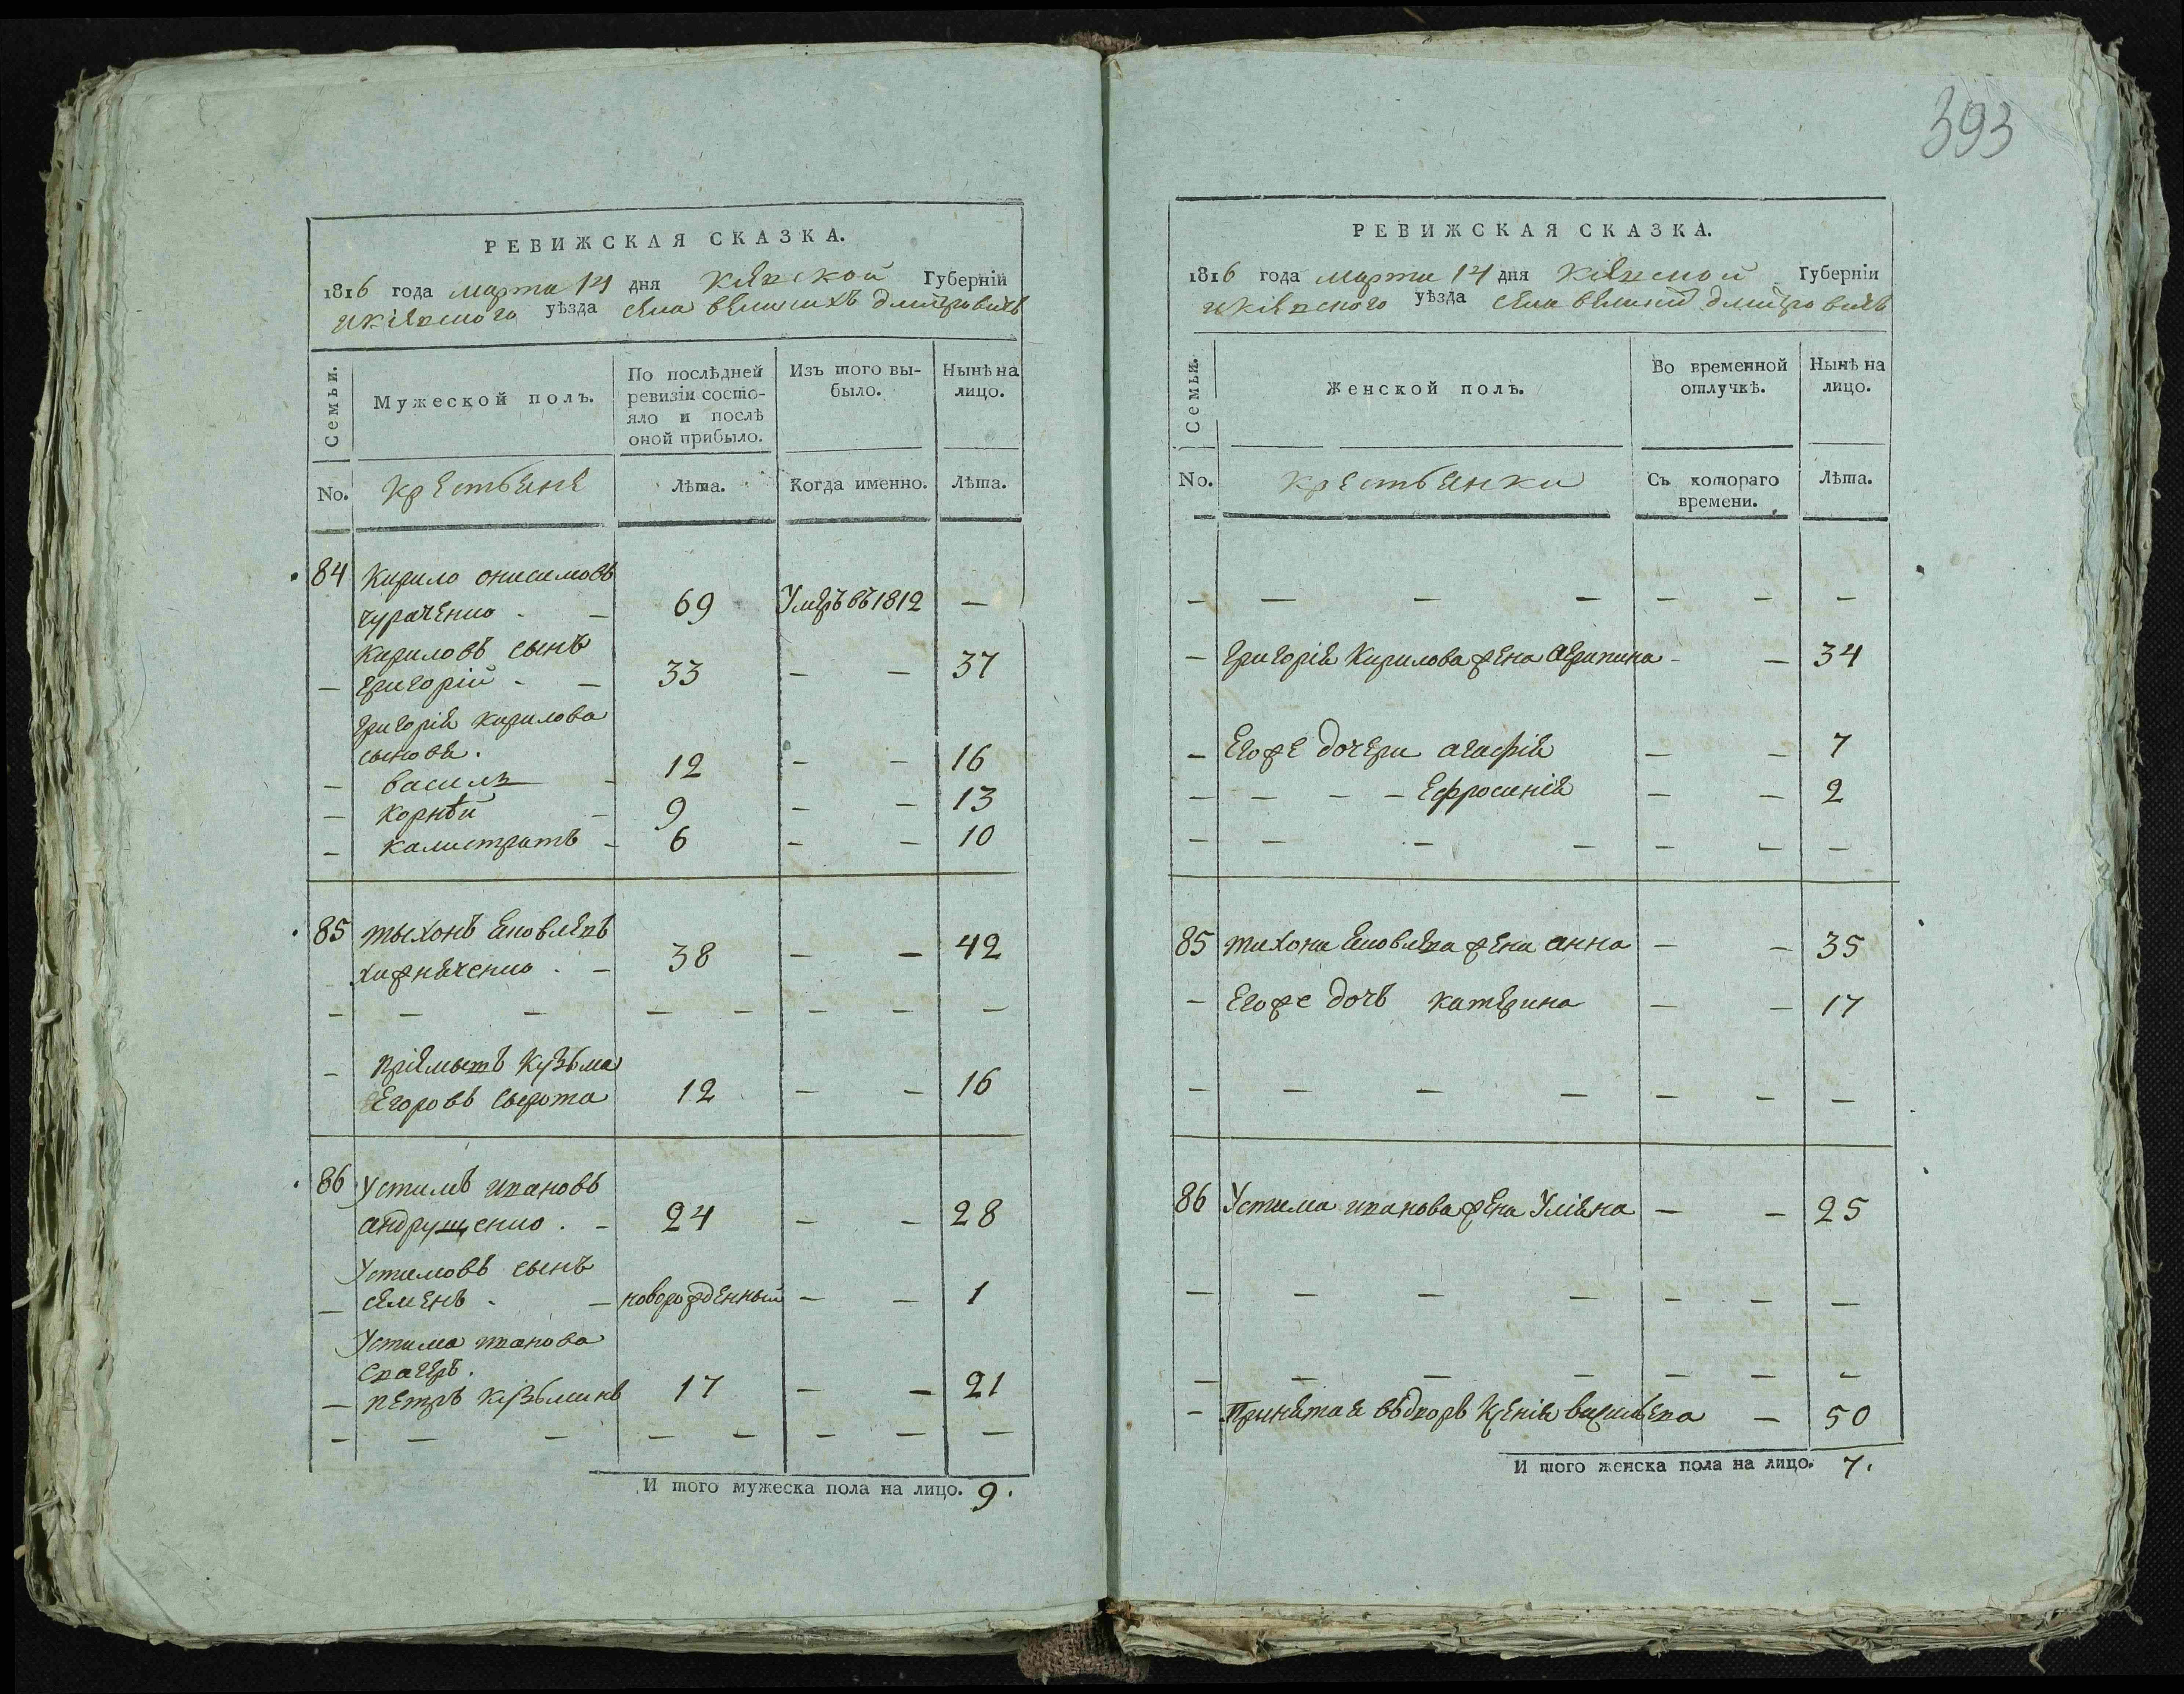 393
РЕВИЖСКАЯ СКАЗКА.
1816 года марта 14 дня Кіевской Губерніи
и Кіевского уѣзда села Великихъ Дмитровичь
Семьи.
Мужеской полъ.
По послѣдней
ревизіи состо-
яло и послѣ
оной прибыло.
Изъ того вы-
было.
Нынѣ на
лицо.
No. крестьяне Лѣта. Когда именно. Лѣта.
84 Кирило Онисимовъ
чураченко - - 69 Умеръ въ 1812 —
Кириловъ сынъ
— Григорій - - 33 - - 37
Григорія Кирилова
сыновя.
— Василь - 12 - - 16
— Корнѣй - 9 - - 13
— Калистратъ - 6 - - 10
85 Тыхонъ Яковлевъ
- 38 - - 42
— — — — — — — —
— Пріемышъ Кузьма
Егоровъ сырота 12 - - 16
86 Устимъ Ивановъ
андрущенко . - 24 - - 28
Устимовъ сынъ
— Семенъ - - новорожденный - - 1
Устима Иванова
— Петръ Кузьминъ 17 - - 21
— — — — — — — —
И того мужеска пола на лицо. 9.
РЕВИЖСКАЯ СКАЗКА.
1816 года марта 14 дня Кіевской Губерніи
и Кіевского уѣзда села Великій Дмитровичь
Семьи.
Женской полъ.
Во временной
отлучкѣ.
Нынѣ на
лицо.
No. крестьянки Съ котораго
времени. Лѣта.
— — — — — — —
— Григорія Кирилова жена Агрипина - - 34
— Егоже дочери агафія — — 7
— — — — Ефросинія — — 2
— — — — — — —
85 Тихона Яковлева жена анна — — 35
— Егоже дочь катерина — — 17
— — — — — — —
86 Устима Иванова жена Уліяна — — 25
— — — — — — —
— — — — — — —
— Принятая въ дворъ Ксенія Васильева — 50
И того женска пола на лицо. 7.